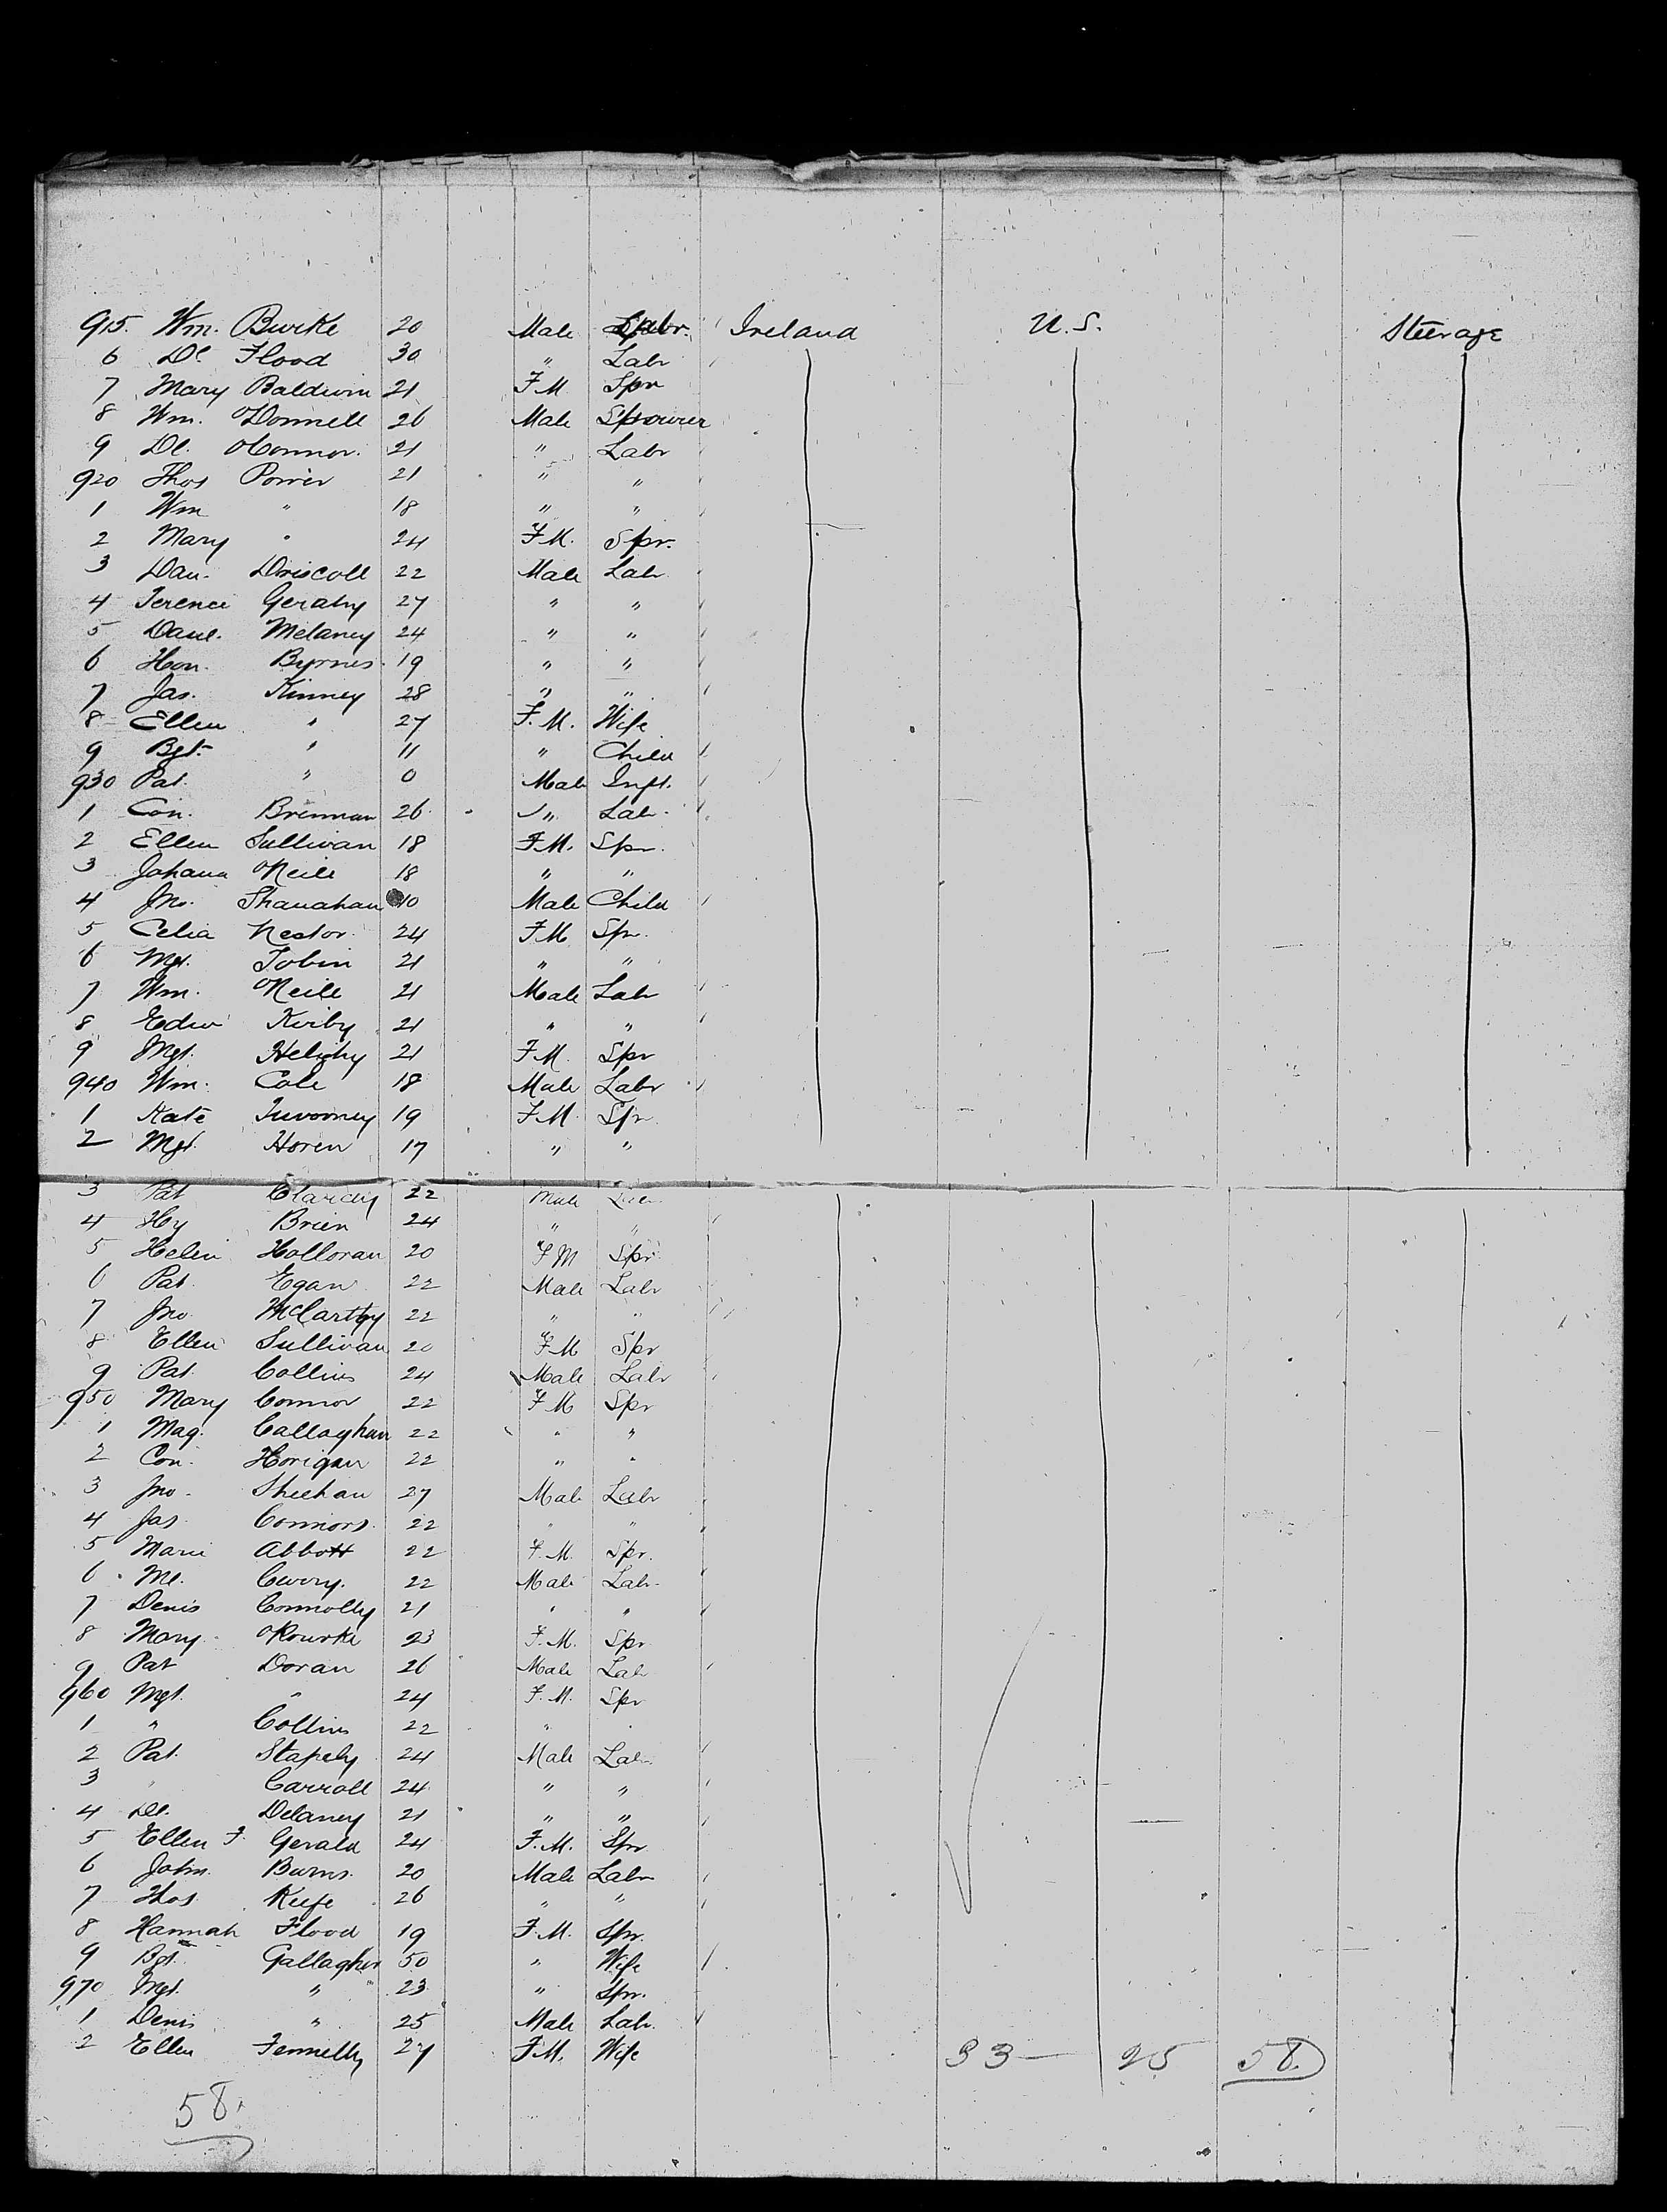 915. Wm. Burke 20 Male Labr. Ireland U.S. Steerage
6 Dl. Flood 30 " Labr
7 Mary Baldwin 21 F.M Spr
8 Wm. O'Donnell 26 Male
9 Dl. O'Connor. 21 " Labr
920 Thos Power 21 " "
1 Wm " 18 " "
2 Mary " 24 F.M. Spr.
3 Dan. Driscoll 22 Male Labr
4 Terence Geraty 27 " "
5 Danl. Melaney 24 " "
6 Hon. Byrnes. 19 " "
7 Jas. Kinney 28 " "
8 Ellen " 27 F.M. Wife
9 Bgt. " 11 " Child
930 Pat. " 0 Male Inft.
1 Con. Brennan 26 " Labr.
2 Ellen Sullivan 18 F.M. Spr.
3 Johana O'Neill 18 " "
4 Jno. Shanahan 10 Male Child
5 Celia Nestor. 24 F.M Spr.
6 Mgt. Tobin 21 " "
7 Wm. O'Neill 21 Male Labr
8 Edw Kirby 21 " "
9 Mgt. 21 F.M. Spr
940 Wm. Cole 18 Male Labr
1 Kate Tuvomey 19 F.M. Spr.
2 Mgt. Horen 17 " "
3 Pat Clarcey 22 Male Labr
4 Hy Brien 24 " "
5 Helen Holloran 20 F M Spr
6 Pat. Egan 22 Male Labr
7 Jno McCarthy 22 " "
8 Ellen Sullivan 20 F M Spr
9 Pat. Collins 24 Male Labr
950 Mary Connor 22 F M Spr
1 Mag. Callaghan 22 " "
2 Con. Horigan 22 " "
3 Jno. Sheehan 27 Male Labr
4 Jas. Connors. 22 " "
5 Marie Abbott 22 F.M. Spr.
6 Ml. 22 Male Labr.
7 Denis Connolly 21 " "
8 Mary O'Rourke 23 F.M. Spr
9 Pat Doran 26 Male Lab
960 Mgt. " 24 F.M. Spr
1 " Collins 22 " "
2 Pat. Stapely 24 Male Labr
3 " Carroll 24 " "
4 Dl. Delaney 21 " "
5 Ellen F. Gerald 24 F.M. Spr
6 John Burns. 20 Male Labr
7 Thos. Keefe 26 " "
8 Hannah Flood 19 F.M. Spr.
9 Bgt. Gallagher 50 " Wife
970 Mgt. " 23 " Spr.
1 Denis " 25 Male Labr.
2 Ellen Fennelly 27 F.M. Wife
33 — 25 58
58.